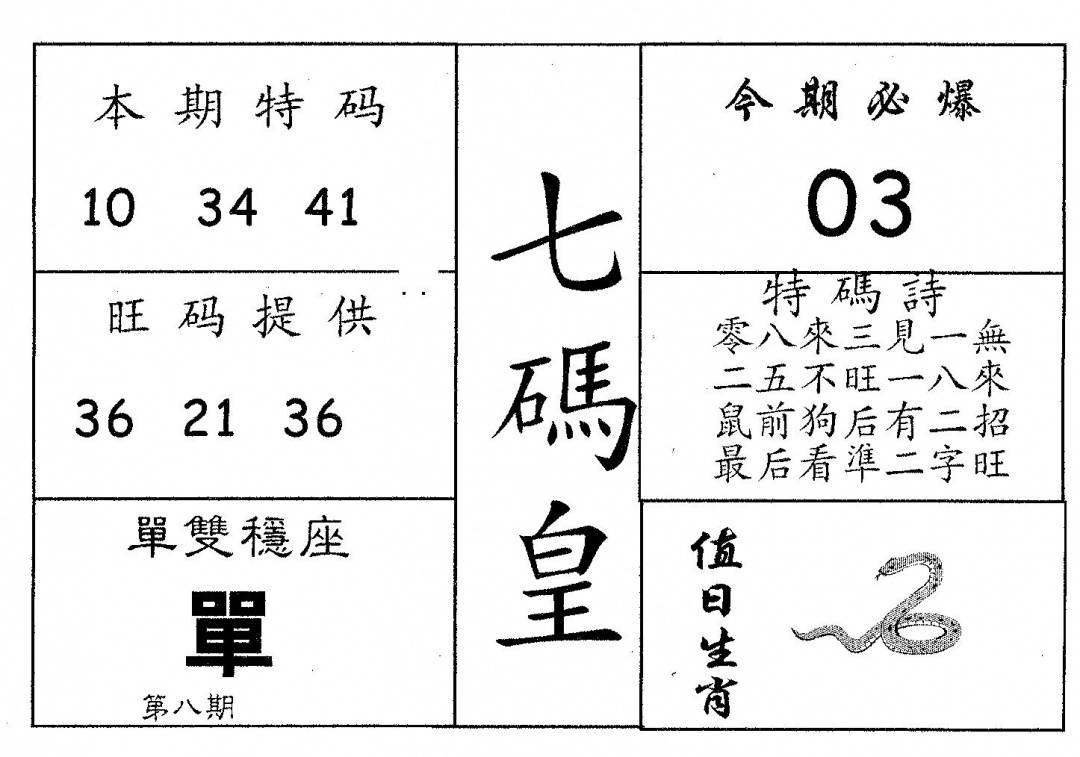 本期特码
10 34 41
旺码提供
36 21 36
單雙穩座
單
第八期
七碼皇
今期必爆
03
特碼詩
零八來三見一無
二五不旺一八來
鼠前狗后有二招
最后看準二字旺
值日生肖